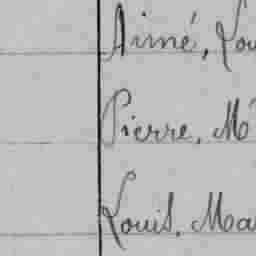 Aimé, Lou
Pierre, M
Louis, Ma